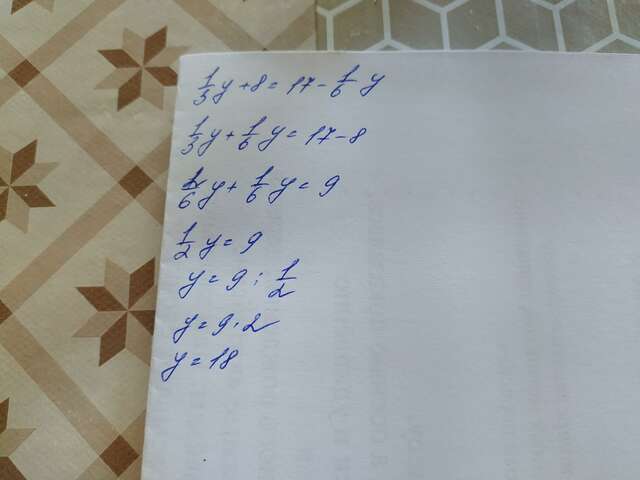 1/3 y + 8 = 17 - 1/6 y
1/3 y + 1/6 y = 17 - 8
1/6 y + 1/6 y = 9
1/2 y = 9
y = 9 : 1/2
y = 9 · 2
y = 18